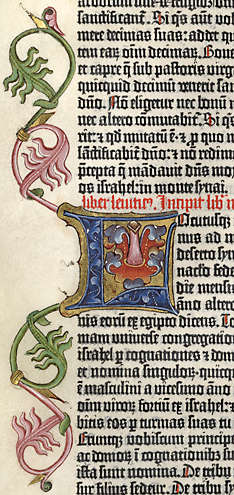 sanctificant. Si q̃s aut̃ vol
mere decimas suas: addet qui
tem eaꝝ. Om̃ im̃ decimaꝝ. Boui
et capre q̃ sub pastoris virga
quicquid decimũ venerit san
dño. Nõ eligetur nec bonũ n
nec altero cõmutabit̃. Si q̃s
rit: ⁊ qđ mutatũ ẽ· ⁊ ꝓ quo m
sanctificabit̃ dño: ⁊ nõ redime
precepta q̃ mãdauit dñs mo
os israhel: in monte synai.
liber leuitic⁹. Incipit lib̃ n
Locutusq̃
nus ad m
deserto sy
naclo fede
die mensi
anno altero
nis eorũ ex egipto dicens. To
mam uniuerse congregation
israhel ꝑ cognationes ⁊ domo
et nomina singuloꝝ: quicq
ẽ masculini a vicesimo anno
om̃ viroꝝ fortiũ ex israhel: ⁊
bitis eos ꝑ turmas suas tu
Eruntq̃ vobiscum princip
ac domoꝝ ĩ cognationibʒ su
ista sunt nomina. De tribu
sur filius sedeur. De tribu sy